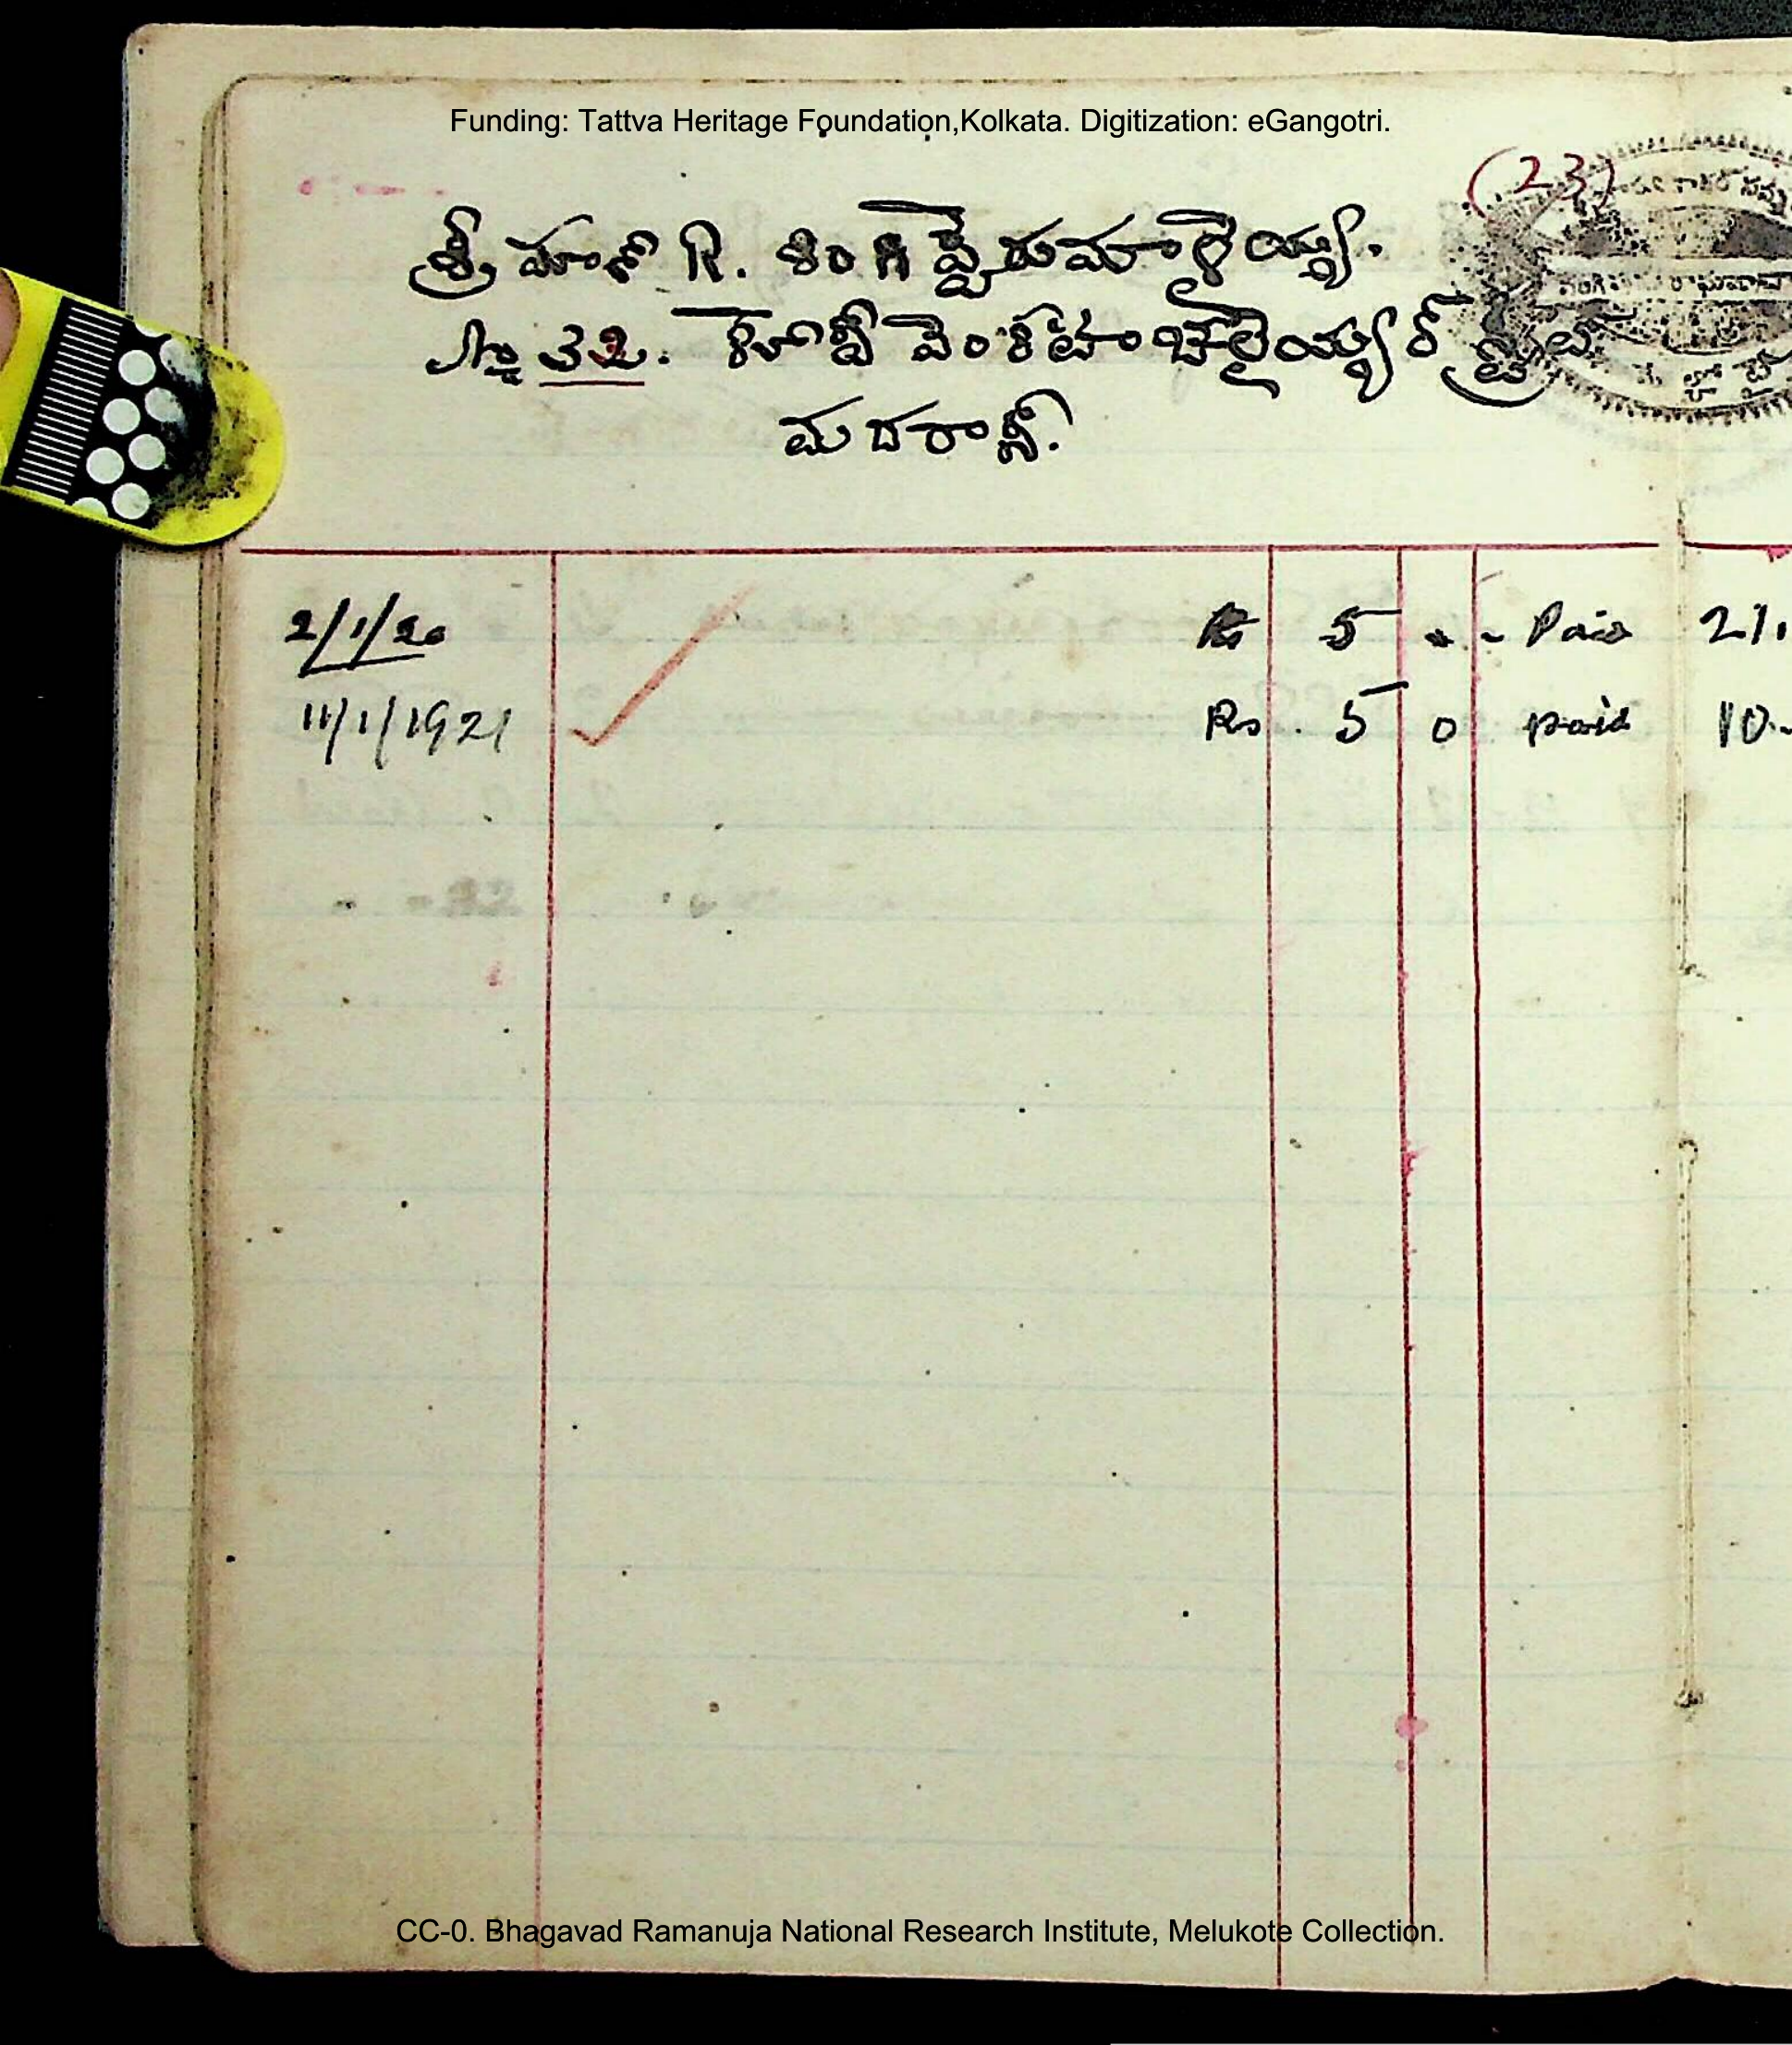 Funding: Tattva Heritage Foundation,Kolkata. Digitization: eGangotri.
(23)
శ్రీమాన్ R. శింగప్పెరుమాళైయ్య.
32. వెంకటాచలైయ్యర్
మదరాస్.
2/1/20 Rs 5 - - Paid
11/1/1921 Rs. 5 0 paid 10
CC-0. Bhagavad Ramanuja National Research Institute, Melukote Collection.